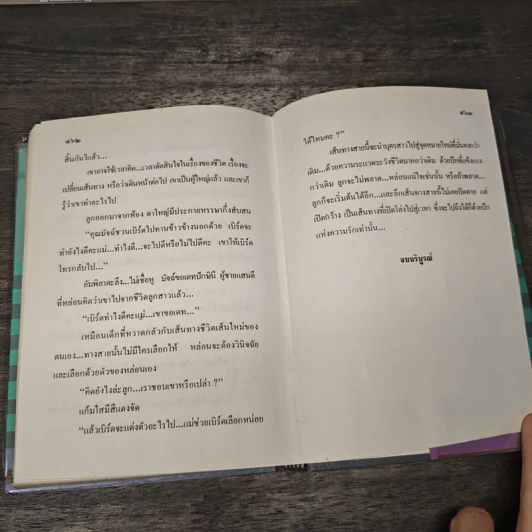 ๔๖๒
สิ้นกันไแล้ว...
เขาอาจใช้เวลาคิด...เวลาตัดสินใจในเรื่องของชีวิต เรื่องจะ
เปลี่ยนเส้นทาง หรือว่าเดินหน้าต่อไป เขาเป็นผู้ใหญ่แล้ว และเขาก็
รู้ว่าเขาทำอะไรไป
ลูกออกมาจากห้อง ตาใหญ่มีประกายหรรษากึ่งสับสน
“คุณมัจฉ์ชวนเบิร์ดไปทานข้าวข้างนอกด้วย เบิร์ดจะ
ทำยังไงดีคะแม่...ทำไงดี...จะไปดีหรือไม่ไปดีคะ เขาให้เบิร์ด
โทรกลับไป...”
อัมพิลาตะลึง...ไม่เชื่อหู มัจฉ์ขอเดทปักษิณี ผู้ชายแสนดี
ที่หล่อนคิดว่าเขาไปจากชีวิตลูกสาวแล้ว...
“เบิร์ดทำไงดีคะแม่...เขาขอเดท...”
เหมือนเด็กที่หวาดกลัวกับเส้นทางชีวิตเส้นใหม่ของ
ตนเอง...ทางสายนั้นไม่มีใครเลือกให้ หล่อนจะต้องวินิจฉัย
และเลือกด้วยตัวของหล่อนเอง
“คิดยังไงล่ะลูก...เราชอบเขาหรือเปล่า ?”
แก้มใสมีสีแดงจัด
“แล้วเบิร์ดจะแต่งตัวอะไรไป...แม่ช่วยเบิร์ดเลือกหน่อย
๕๖๓
ได้ไหมคะ ?”
เส้นทางสายนี้จะนำบุตรสาวไปสู่จุดหมายใหม่ที่มั่นคงกว่า
เดิม...ด้วยความระแวดระวังชีวิตมากกว่าเดิม ด้วยปีกที่แข็งแรง
กว่าเดิม ลูกจะไม่พลาด...หล่อนแน่ใจเช่นนั้น หรือถ้าพลาด...
ลูกก็จะเริ่มต้นได้อีก...และอีกเส้นทางสายนี้ไม่เคยปิดตาย แต่
เปิดกว้าง เป็นเส้นทางที่เปิดโล่งไปสู่เวหา ซึ่งจะไปถึงได้ก็ด้วยปีก
แห่งความรักเท่านั้น...
จบบริบูรณ์